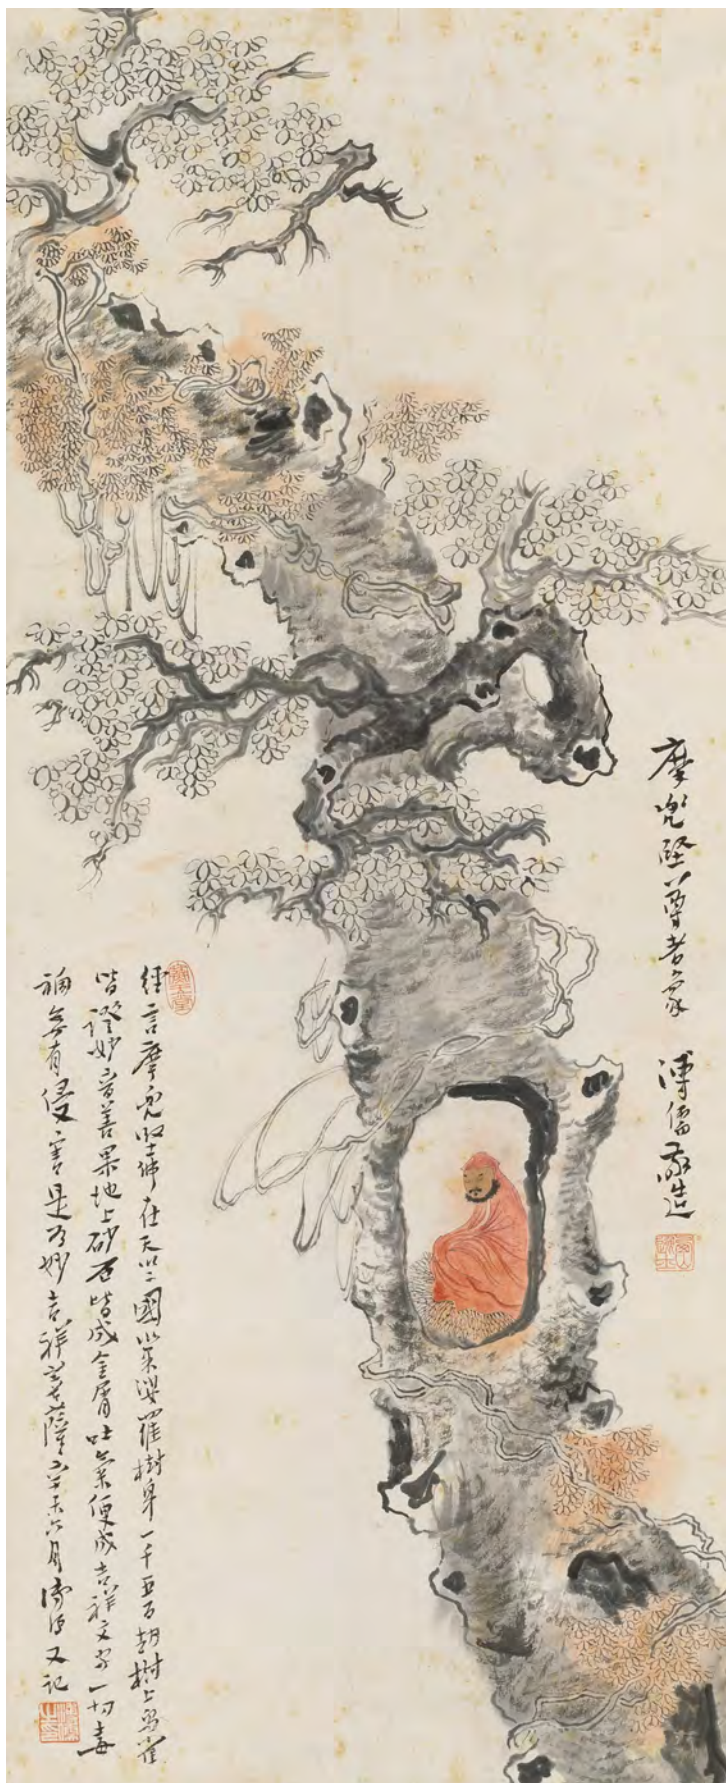 摩兜堅尊者象 溥儒敬造
經言摩兜堅佛在天竺國羅樹身一千五百劫樹上鳥雀
皆證妙音善果地上砂石皆成金屑吐氣便成吉祥文字一切毒
禍無有侵害是為妙吉祥菩薩辛未六月溥儒又記